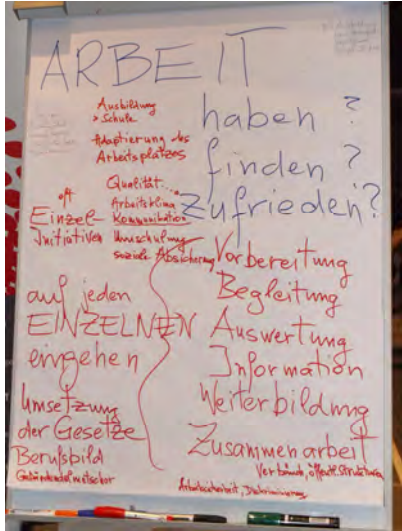 ARBEIT
haben ?
finden ?
Zufrieden?
Ausbildung
> Schule
Adaptierung des
Arbeitsplatzes
Qualität...
Arbeitsklima
Kommunikation
Umschulung
soziale Absicherung
oft
Einzel-
Initiativen
auf jeden
EINZELNEN
eingehen
Umsetzung
der Gesetze
Berufsbild
Gebärdendolmetscher
Vorbereitung
Begleitung
Auswertung
Information
Weiterbildung
Zusammenarbeit
Verbände, öffentl. Strukturen
Arbeitssicherheit, Diskriminierung